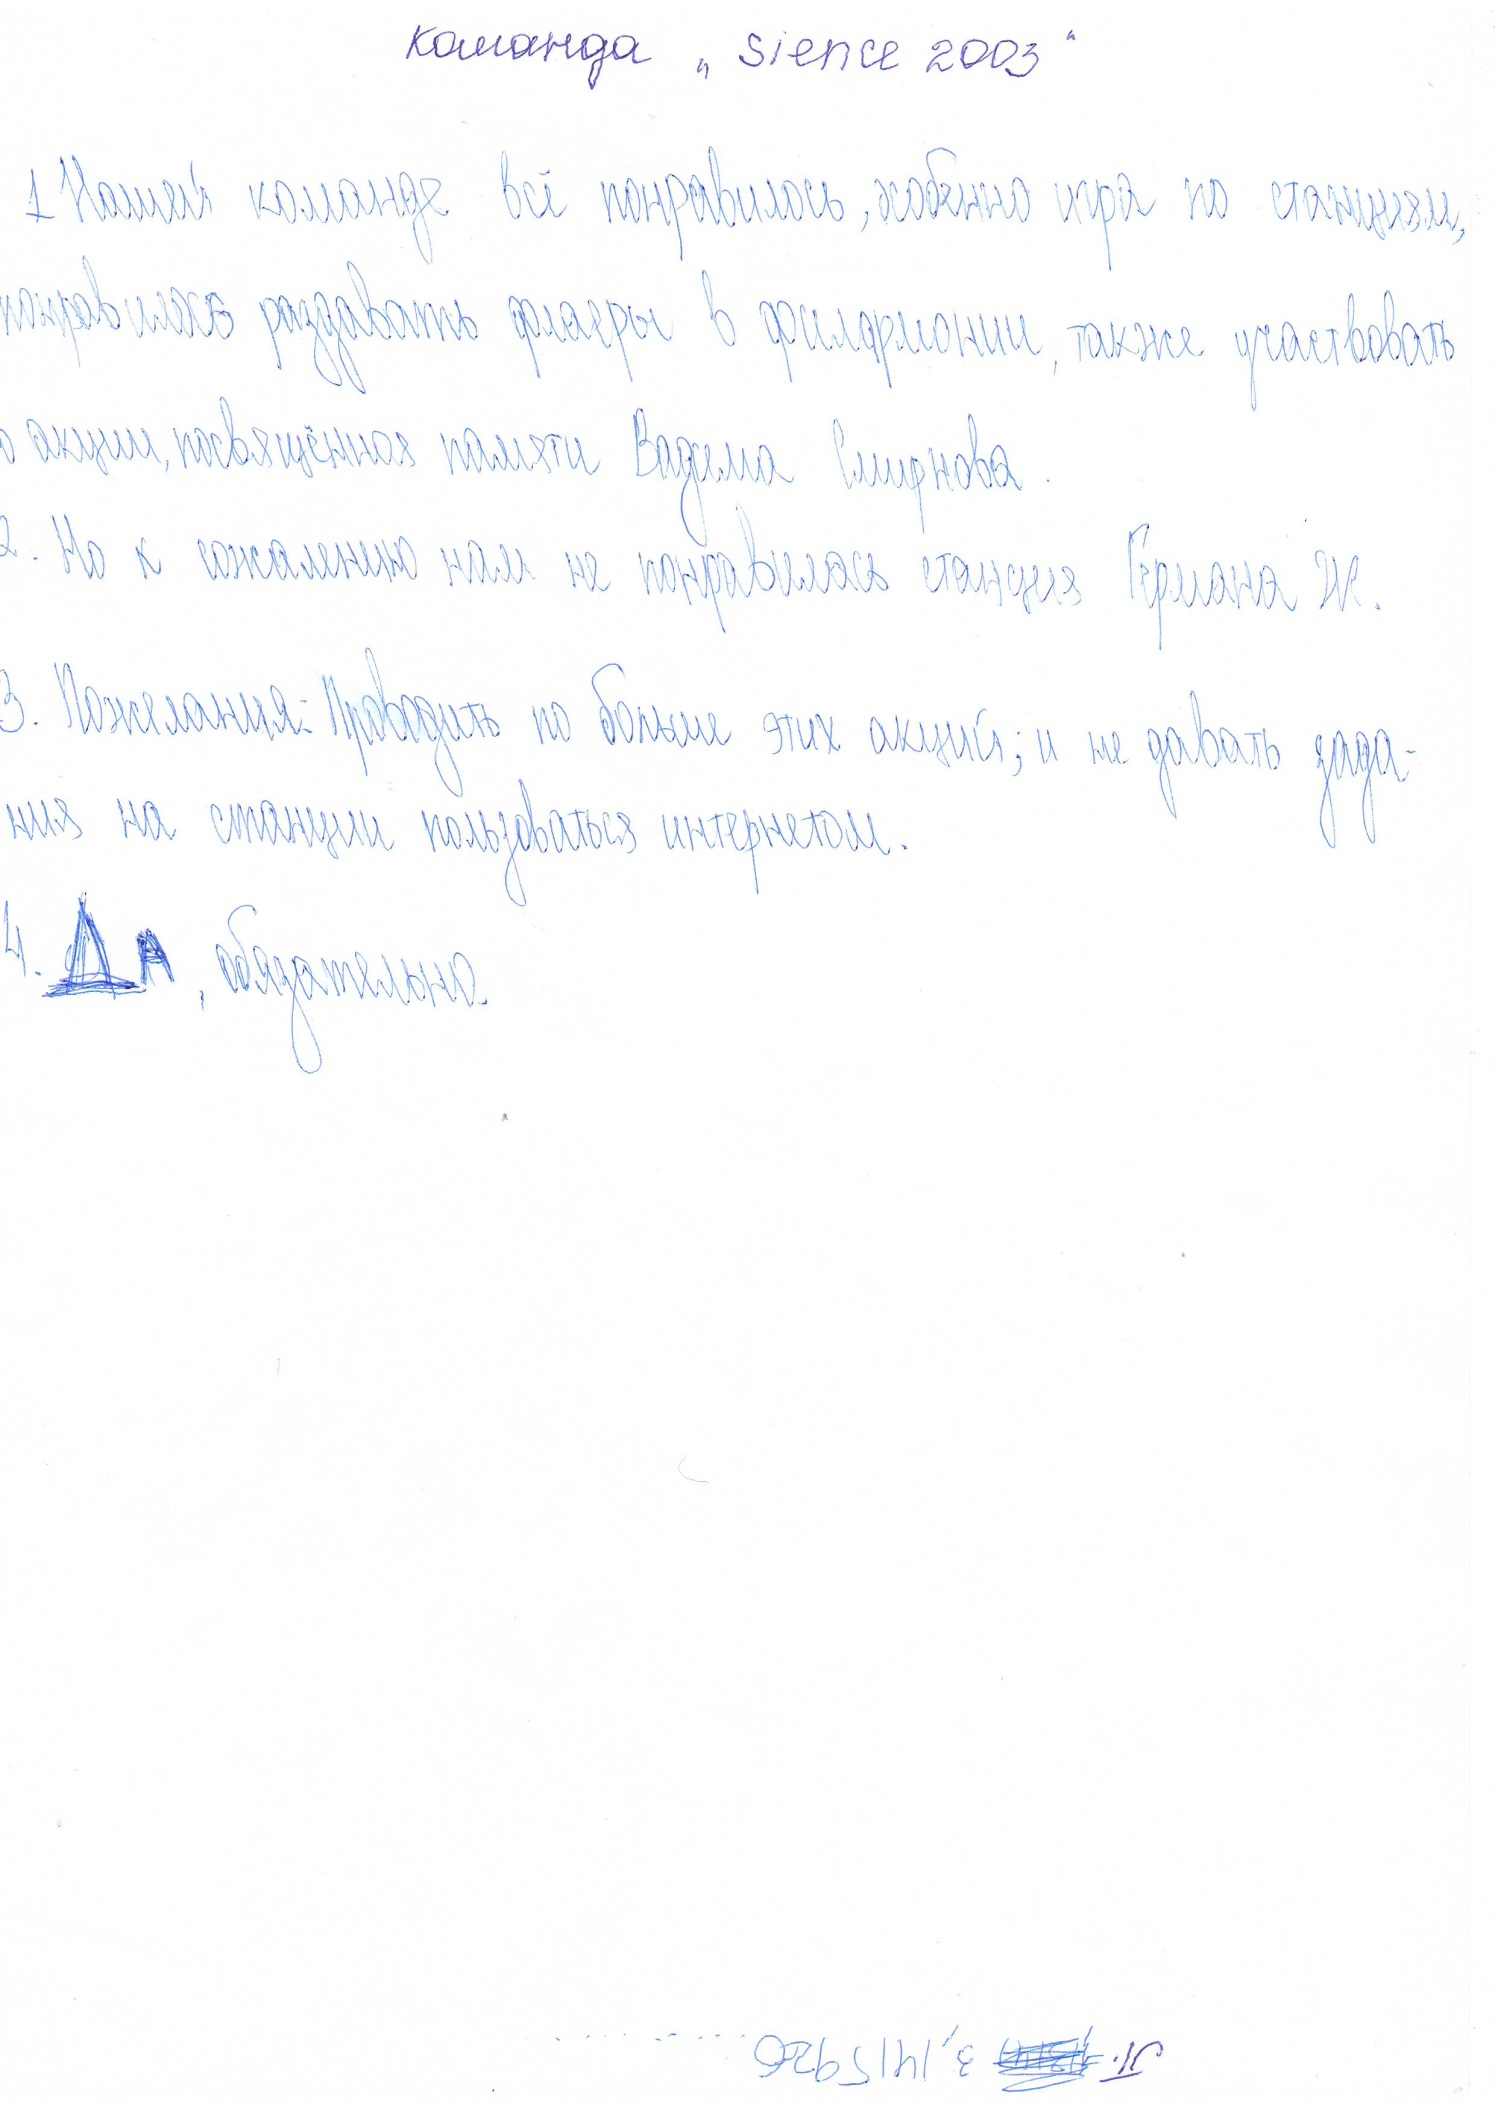 Команда „Sience 2003"
1 Нашей команде всё понравилось, особенно игра по станциям,
понравилось раздавать флаеры в филармонии, также участвовать
о акции, посвящённая памяти Вадима Смирнова.
2. Но к сожалению нам не понравилась станция Германа Ж.
3. Пожелания: Проводить по больше этих акций; и не давать зада-
ния на станции пользоваться интернетом.
4. ДА, обязательно.
П. 3,1415926..........